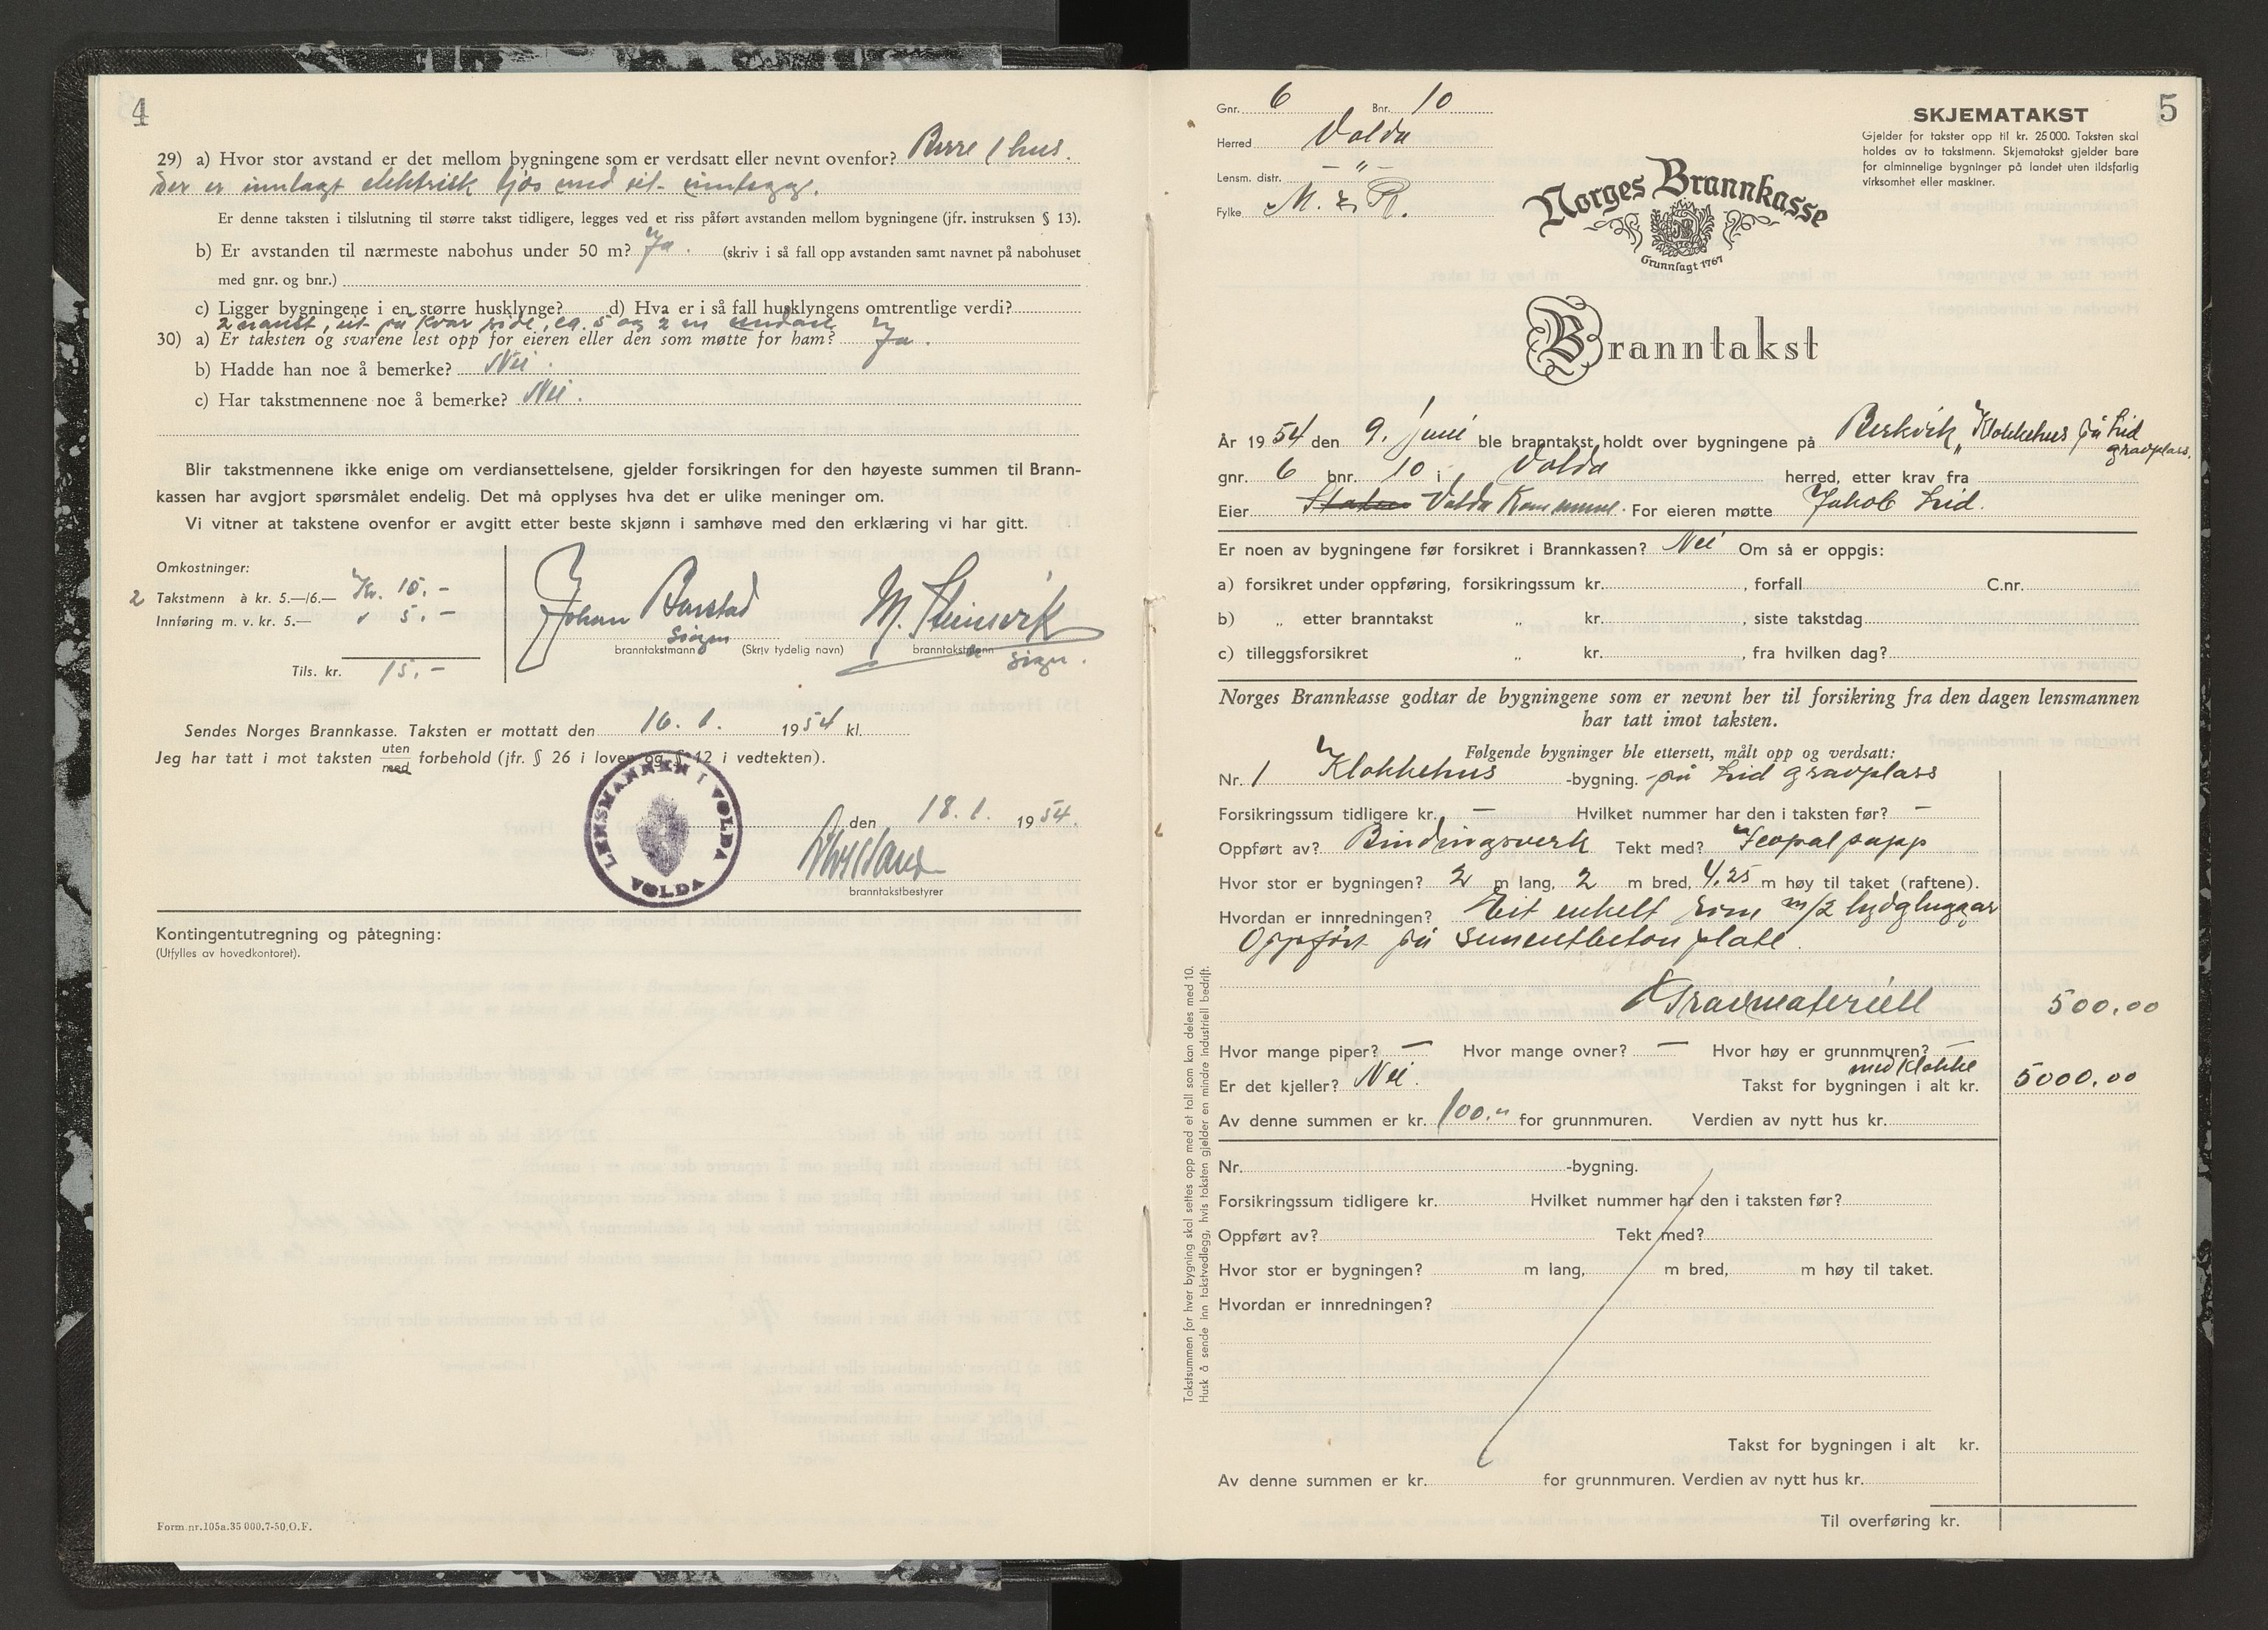 4
29) a) Hvor stor avstand er det mellom bygningene som er verdsatt eller nevnt ovenfor? Berre 1 hus.
Der er innlagt elektrisk ljos med sit innlegg.
Er denne taksten i tilslutning til større takst tidligere, legges ved et riss påført avstanden mellom bygningene (jfr. instruksen § 13).
b) Er avstanden til nærmeste nabohus under 50 m? Ja. (skriv i så fall opp avstanden samt navnet på nabohuset
med gnr. og bnr.)
c) Ligger bygningene i en større husklynge? d) Hva er i så fall husklyngens omtrentlige verdi?
2 naust, eit på kvar side, ca. 5 og 2 m undan
30) a) Er taksten og svarene lest opp for eieren eller den som møtte for ham? Ja.
b) Hadde han noe å bemerke? Nei.
c) Har takstmennene noe å bemerke? Nei.
Blir takstmennene ikke enige om verdiansettelsen, gjelder forsikringen for den høyeste summen til Brann-
kassen har avgjort spørsmålet endelig. Det må opplyses hva det er ulike meninger om.
Vi vitner at takstene ovenfor er avgitt etter beste skjønn i samhøve med den erklæring vi har gitt.
Omkostninger:
2 Takstmenn à kr. 5.—/6.— Kr. 10.-
Innføring m. v. kr. 5.— " 5.-
Tils. kr. 15.-
Johan Barstad M. Steinsvik
sign sign.
branntakstmann (Skriv tydelig navn) branntakstmann
Sendes Norges Brannkasse. Taksten er mottatt den 16. 1. 1954 kl.
Jeg har tatt i mot taksten uten/med forbehold (jfr. § 26 i loven og § 12 i vedtekten).
LENSMANNEN I VOLDA
VOLDA
den 18. 1. 1954.
branntakstbestyrer
Kontingentutregning og påtegning:
(Utfylles av hovedkontoret).
Form nr. 105a. 35 000. 7-50. O. F.
5
Gnr. 6 Bnr. 10
Herred Volda
Lensm. distr. — " —
Fylke M. & R.
SKJEMATAKST
Gjelder for takster opp til kr. 25 000. Taksten skal
holdes av to takstmenn. Skjematakst gjelder bare
for alminnelige bygninger på landet uten ildsfarlig
virksomhet eller maskiner.
Norges Brannkasse
Grunnlagt 1767
Branntakst
År 1954 den 9. juni ble branntakst holdt over bygningene på Berkvik, Klokkehus på Lid
gravplass.
gnr. 6 bnr. 10 i Volda herred, etter krav fra
Eier Staten Volda Kommune. For eieren møtte Jakob Lid.
Er noen av bygningene før forsikret i Brannkassen? Nei Om så er oppgis:
a) forsikret under oppføring, forsikringssum kr. , forfall C.nr.
b) „ etter branntakst „ kr. , siste takstdag
c) tilleggsforsikret „ kr. , fra hvilken dag?
Norges Brannkasse godtar de bygningene som er nevnt her til forsikring fra den dagen lensmannen
har tatt imot taksten.
Følgende bygninger ble ettersett, målt opp og verdsatt:
Nr. 1 Klokkehus -bygning. på Lid gravplass
Forsikringssum tidligere kr. — Hvilket nummer har den i taksten før? —
Oppført av? Bindingsverk Tekt med? Icopalpapp
Hvor stor er bygningen? 2 m lang, 2 m bred, 4.25 m høy til taket (raftene).
Hvordan er innredningen? Eit enkelt rom m/2 lydgluggar
Oppført på sementbeton plate.
Gravmateriell 500.00
Hvor mange piper? — Hvor mange ovner? — Hvor høy er grunnmuren? —
med klokke
Er det kjeller? Nei. Takst for bygningen i alt kr. 5000.00
Av denne summen er kr. 100.- for grunnmuren. Verdien av nytt hus kr.
Nr. -bygning.
Forsikringssum tidligere kr. Hvilket nummer har den i taksten før?
Oppført av? Tekt med?
Hvor stor er bygningen? m lang, m bred, m høy til taket.
Hvordan er innredningen?
Takst for bygningen i alt kr.
Av denne summen er kr. for grunnmuren. Verdien av nytt hus kr.
Til overføring kr.
Takstsummen for hver bygning skal settes opp med et tall som kan deles med 10.
Husk å sende inn takstvedlegg, hvis taksten gjelder en mindre industriell bedrift.